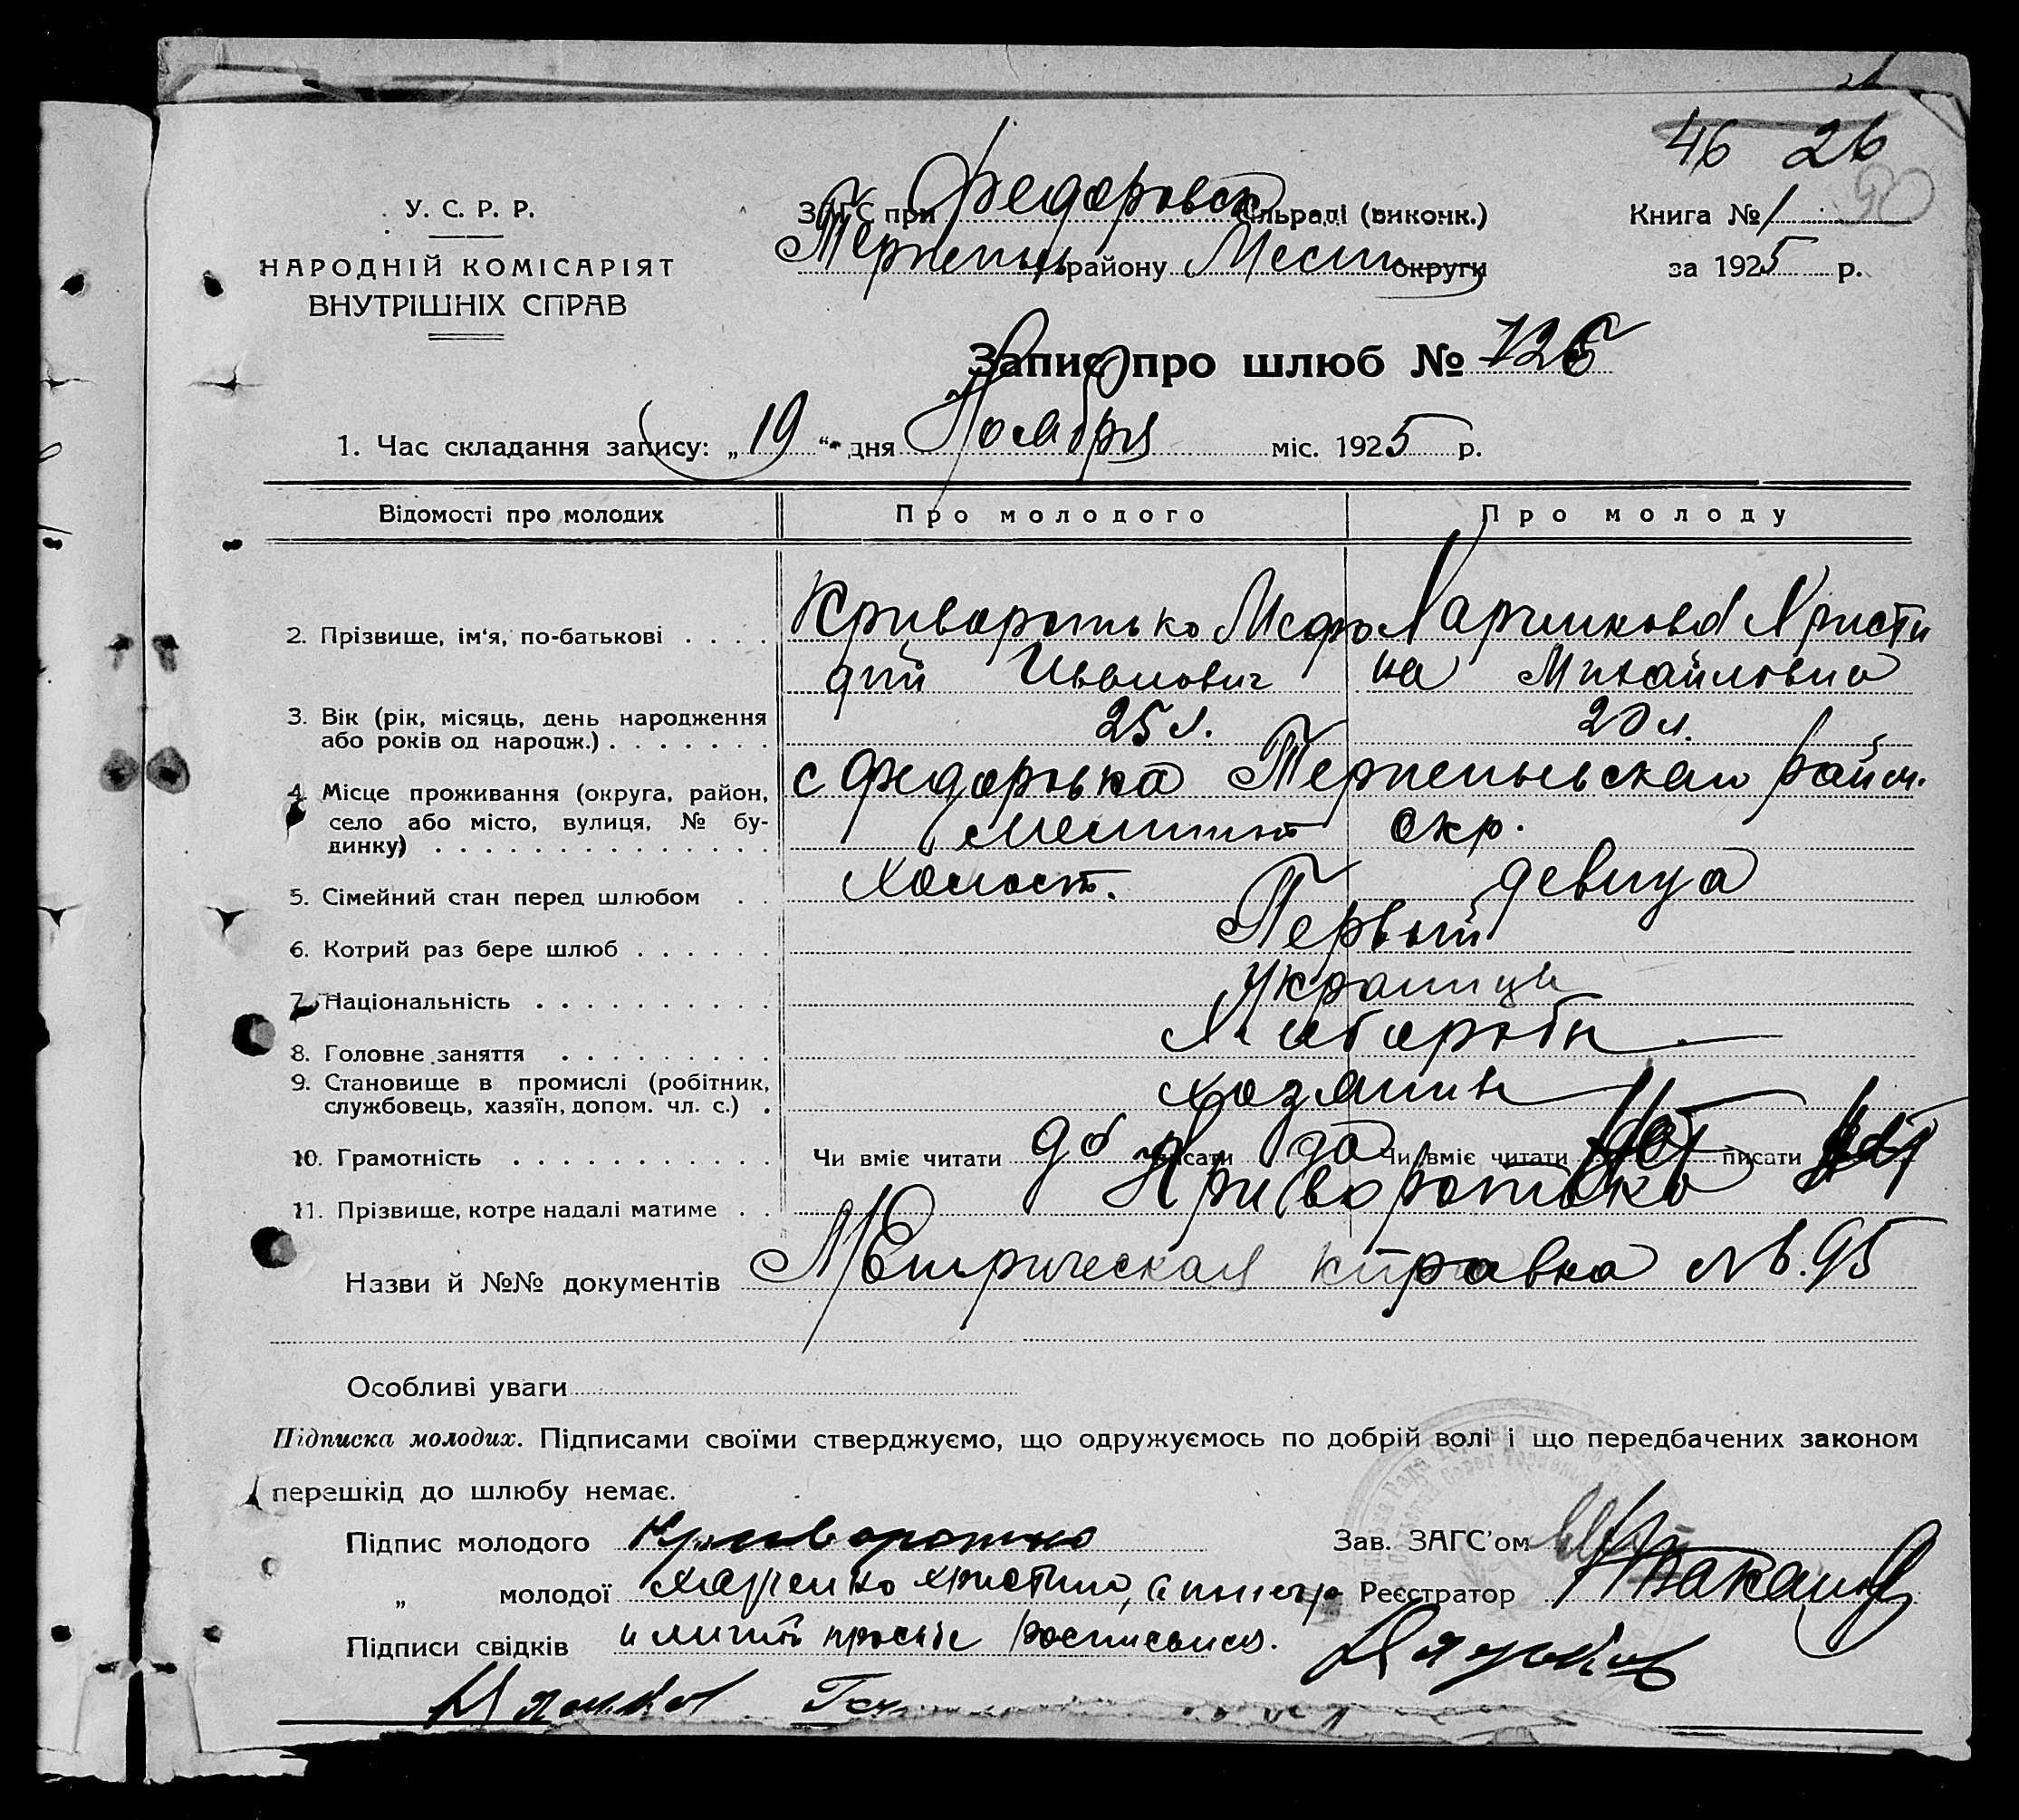 46 26
90
У. С. Р. Р.
НАРОДНІЙ КОМІСАРІЯТ
ВНУТРІШНІХ СПРАВ
ЗАГС при Федоровск сільраді (виконк.)
Терпеньев району Мелит округи
Книга № 1
за 1925 р.
Запис про шлюб № 126
1. Час складання запису: „19“ дня Ноября міс. 1925 р.
Відомості про молодих Про молодого Про молоду
2. Прізвище, ім'я, по-батькові . . . . Криворотько Мефо Харченкова Христи
дий Иванович на Михайловна
3. Вік (рік, місяць, день народження
або років од народж.) . . . . . . . 25 л. 20 л.
4. Місце проживання (округа, район,
село або місто, вулиця, № бу-
динку) . . . . . . . . . . . . . .
с Федоровка Терпеньевскаго район.
Мелитоп окр.
5. Сімейний стан перед шлюбом . . Холост. девица
6. Котрий раз бере шлюб . . . . . . Первый
7. Національність . . . . . . . . . . Украинцы
8. Головне заняття . . . . . . . . . Хлебороби
9. Становище в промислі (робітник,
службовець, хазяїн, допом. чл. с.) . хозяинъ
10. Грамотність . . . . . . . . . . . Чи вміє читати да писати да Чи вміє читати нет писати нет
11. Прізвище, котре надалі матиме . . Криворотько
Назви й №№ документів Метрическая справка № 95
Особливі уваги
Підписка молодих. Підписами своїми стверджуємо, що одружуємось по добрій волі і що передбачених законом
перешкід до шлюбу немає.
Підпис молодого Криворотько
Зав. ЗАГС'ом
„ молодої Харченко Христина, а по негр
Реєстратор
Підписи свідків и личной просьбе росписался.